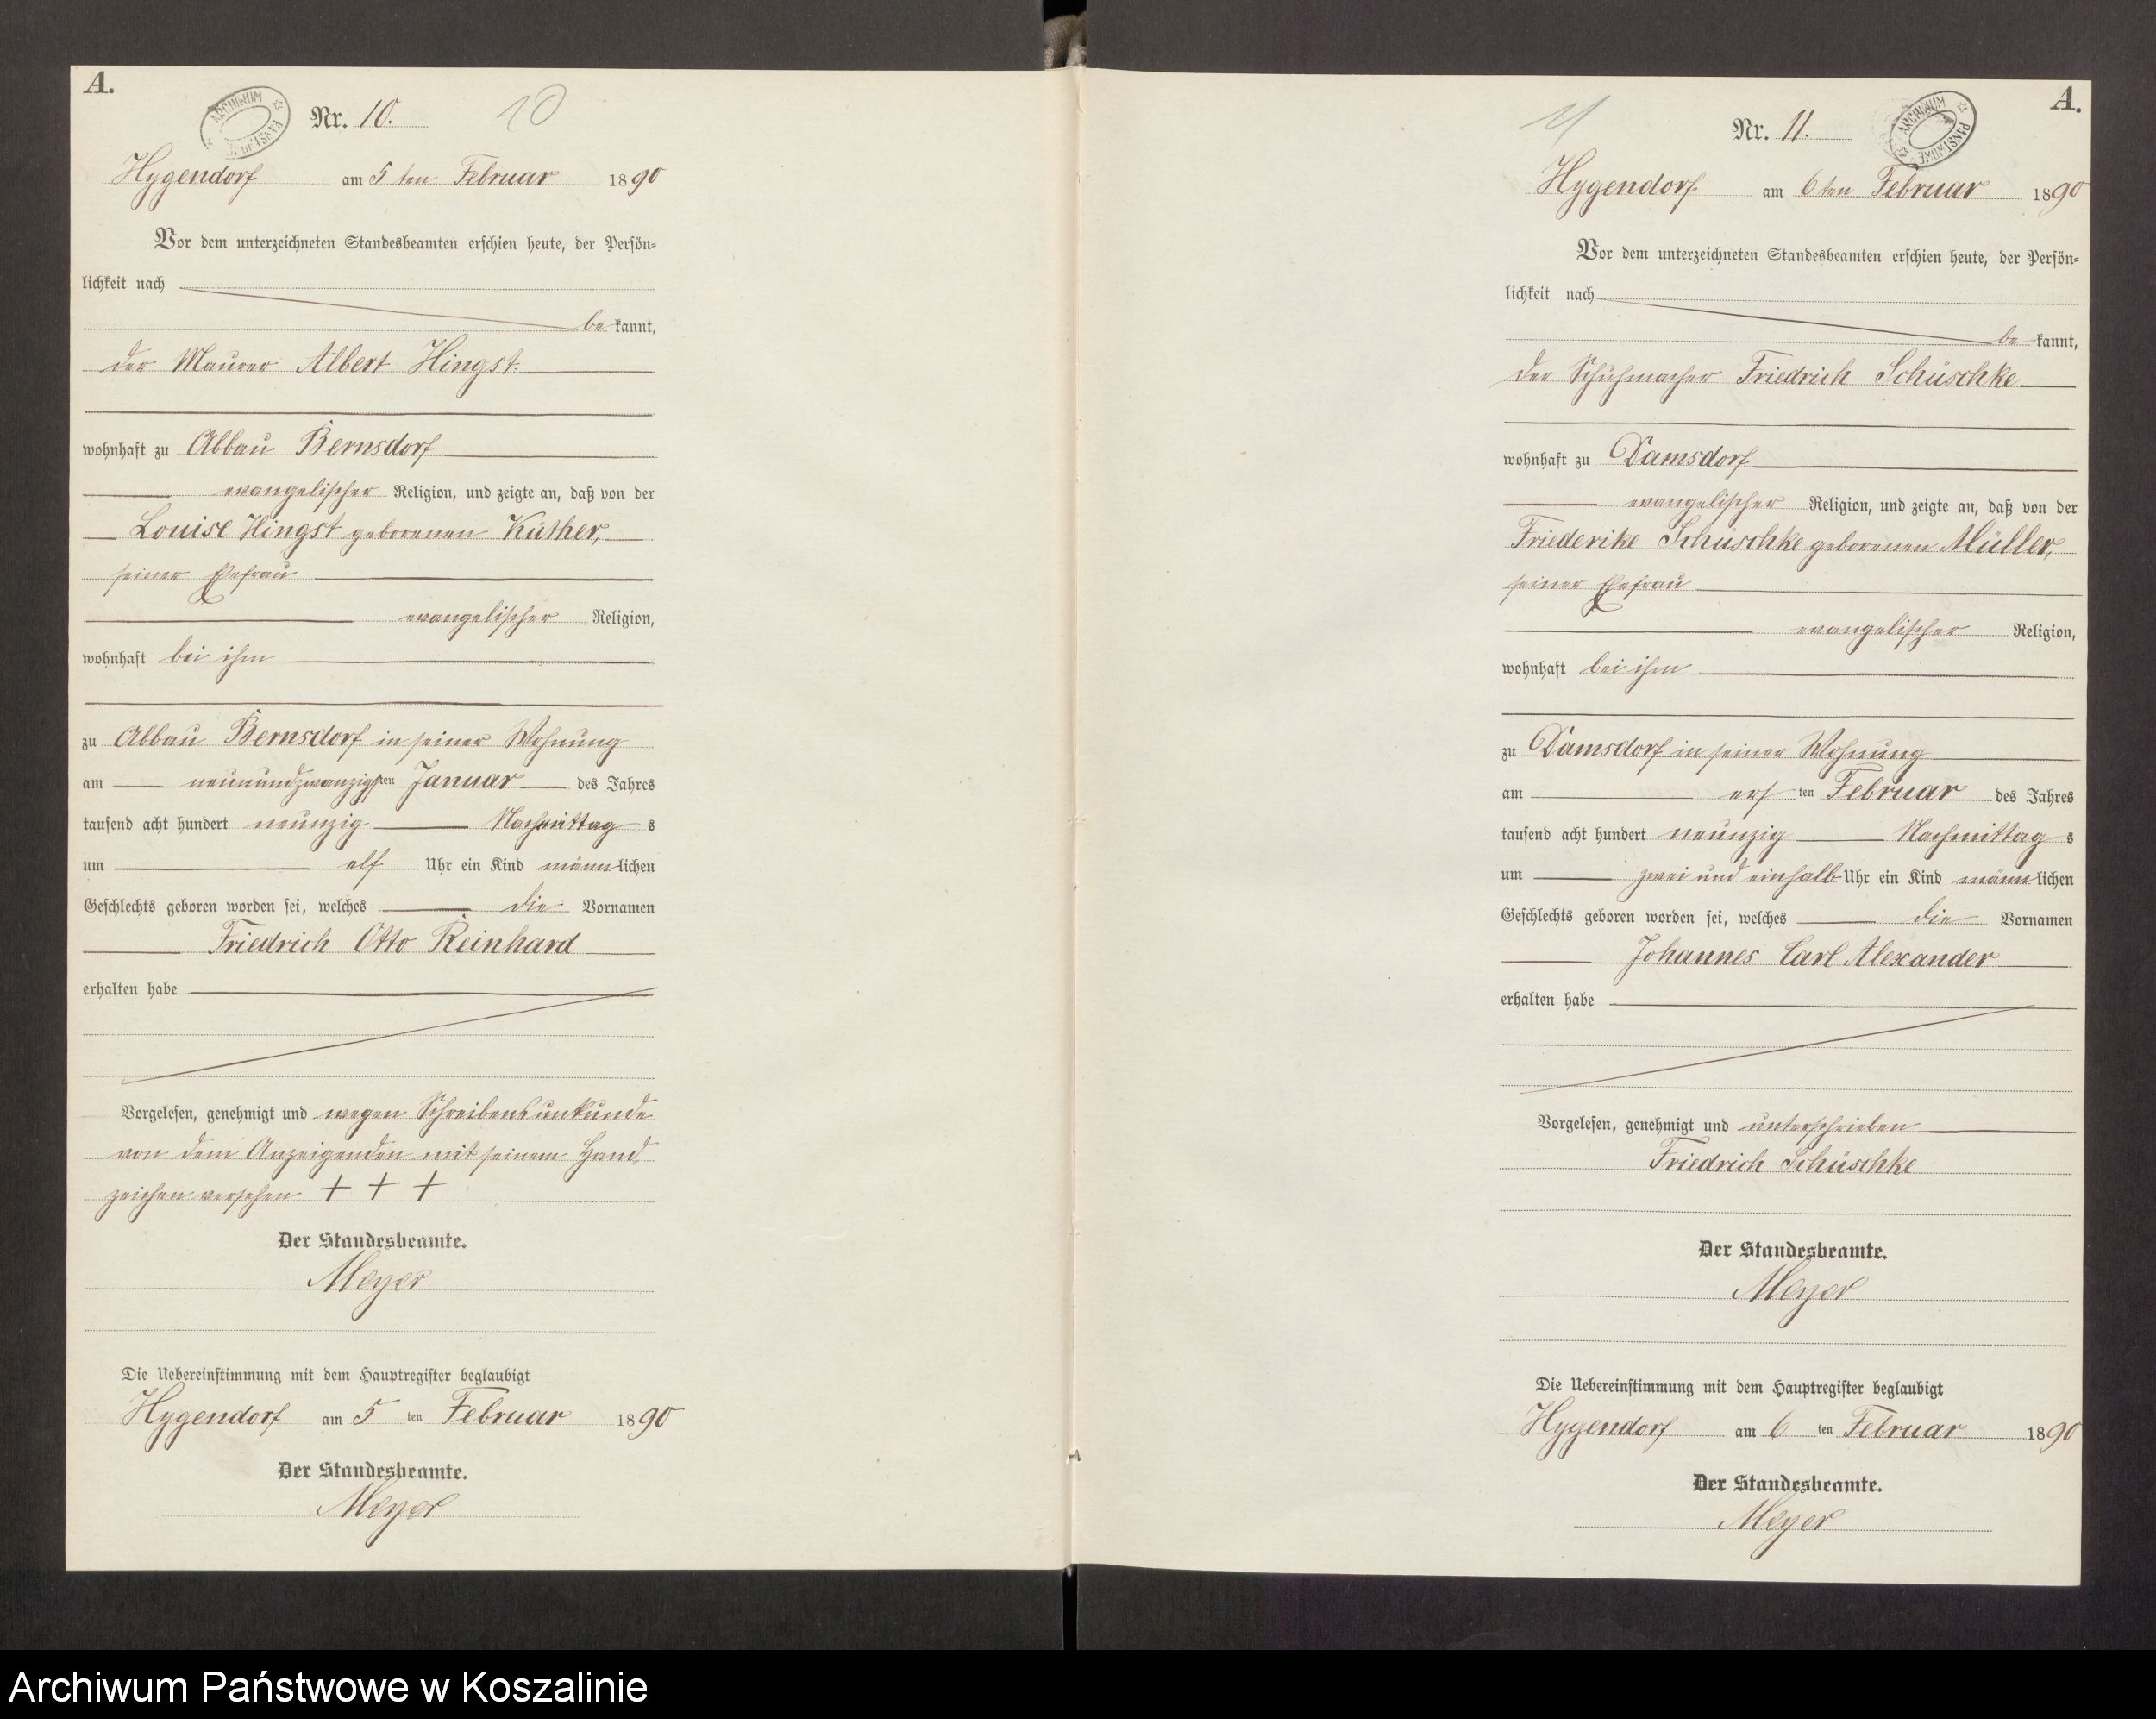 A.
ARCHIWUM PAŃSTWOWE
Nr. 10.
10
Hygendorf am 5 ten Februar 1890
Vor dem unterzeichneten Standesbeamten erschien heute, der Persön-
lichkeit nach
be kannt,
der Maurer Albert Hingst.
wohnhaft zu Abbau Bernsdorf
evangelischer Religion, und zeigte an, daß von der
Louise Hingst geborenen Küther,
seiner Ehefrau
evangelischer Religion,
wohnhaft bei ihm
zu Abbau Bernsdorf in seiner Wohnung
am neunundzwanzigsten Januar des Jahres
tausend acht hundert neunzig Nachmittag s
um elf Uhr ein Kind männlichen
Geschlechts geboren worden sei, welches die Vornamen
Friedrich Otto Reinhard
erhalten habe
Vorgelesen, genehmigt und wegen Schreibensunkunde
von dem Anzeigenden mit seinem Hand-
zeichen versehen + + +
Der Standesbeamte.
Meyer
Die Uebereinstimmung mit dem Hauptregister beglaubigt
Hygendorf am 5 ten Februar 1890
Der Standesbeamte.
Meyer
A.
ARCHIWUM PAŃSTWOWE
11
Nr. 11.
Hygendorf am 6 ten Februar 1890
Vor dem unterzeichneten Standesbeamten erschien heute, der Persön-
lichkeit nach
be kannt,
der Schuhmacher Friedrich Schüschke
wohnhaft zu Damsdorf
evangelischer Religion, und zeigte an, daß von der
Friederike Schuschke geborenen Müller,
seiner Ehefrau
evangelischer Religion,
wohnhaft bei ihm
zu Damsdorf in seiner Wohnung
am ers ten Februar des Jahres
tausend acht hundert neunzig Nachmittag s
um zwei und einhalb Uhr ein Kind männlichen
Geschlechts geboren worden sei, welches die Vornamen
Johannes Carl Alexander
erhalten habe
Vorgelesen, genehmigt und unterschrieben
Friedrich Schüschke
Der Standesbeamte.
Meyer
Die Uebereinstimmung mit dem Hauptregister beglaubigt
Hygendorf am 6 ten Februar 1890
Der Standesbeamte.
Meyer
Archiwum Państwowe w Koszalinie